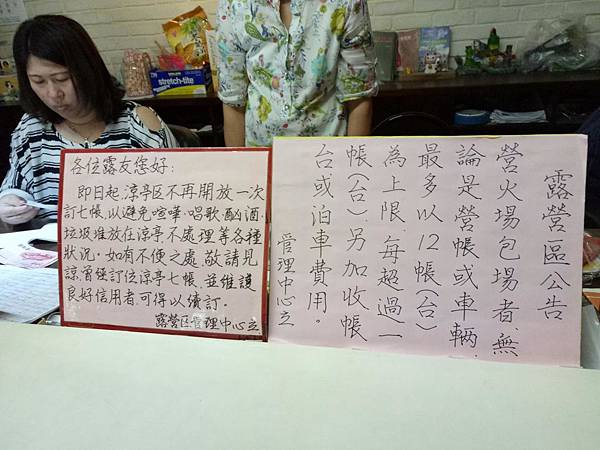 各位露友您好:
即日起,涼亭区不再開放一次
訂七帳,以避免喧嘩、唱歌、酗酒、
垃圾堆放在涼亭不處理等各種
狀况。如有不便之處,敬請見
諒,曾經訂位涼亭七帳,並維護
良好信用者,可得以續訂。
露營区管理中心立
露營區公告
營火場包場者、無
論是營帳或車輛,
最多以12帳(台)
為上限,每超過一
帳(台)、另加收帳
台或泊車費用。
管理中心立
stretch-tite